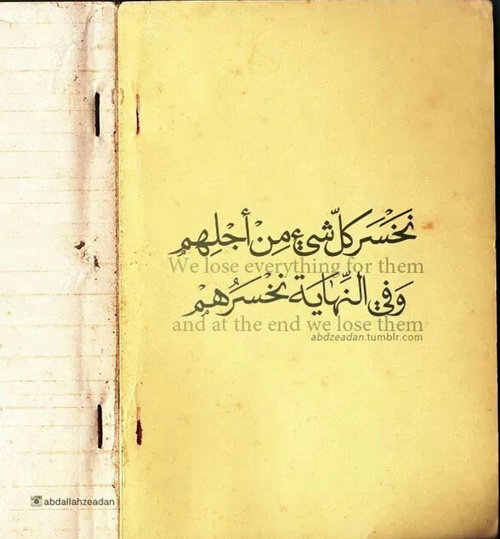 نَخْسَر كلّ شيءٍ مِنْ أجْلِهمْ
We lose everything for them
وَفي النِّهَايَة نَخْسَرُهمْ
and at the end we lose them
abdzeadan.tumblr.com
abdallahzeadan